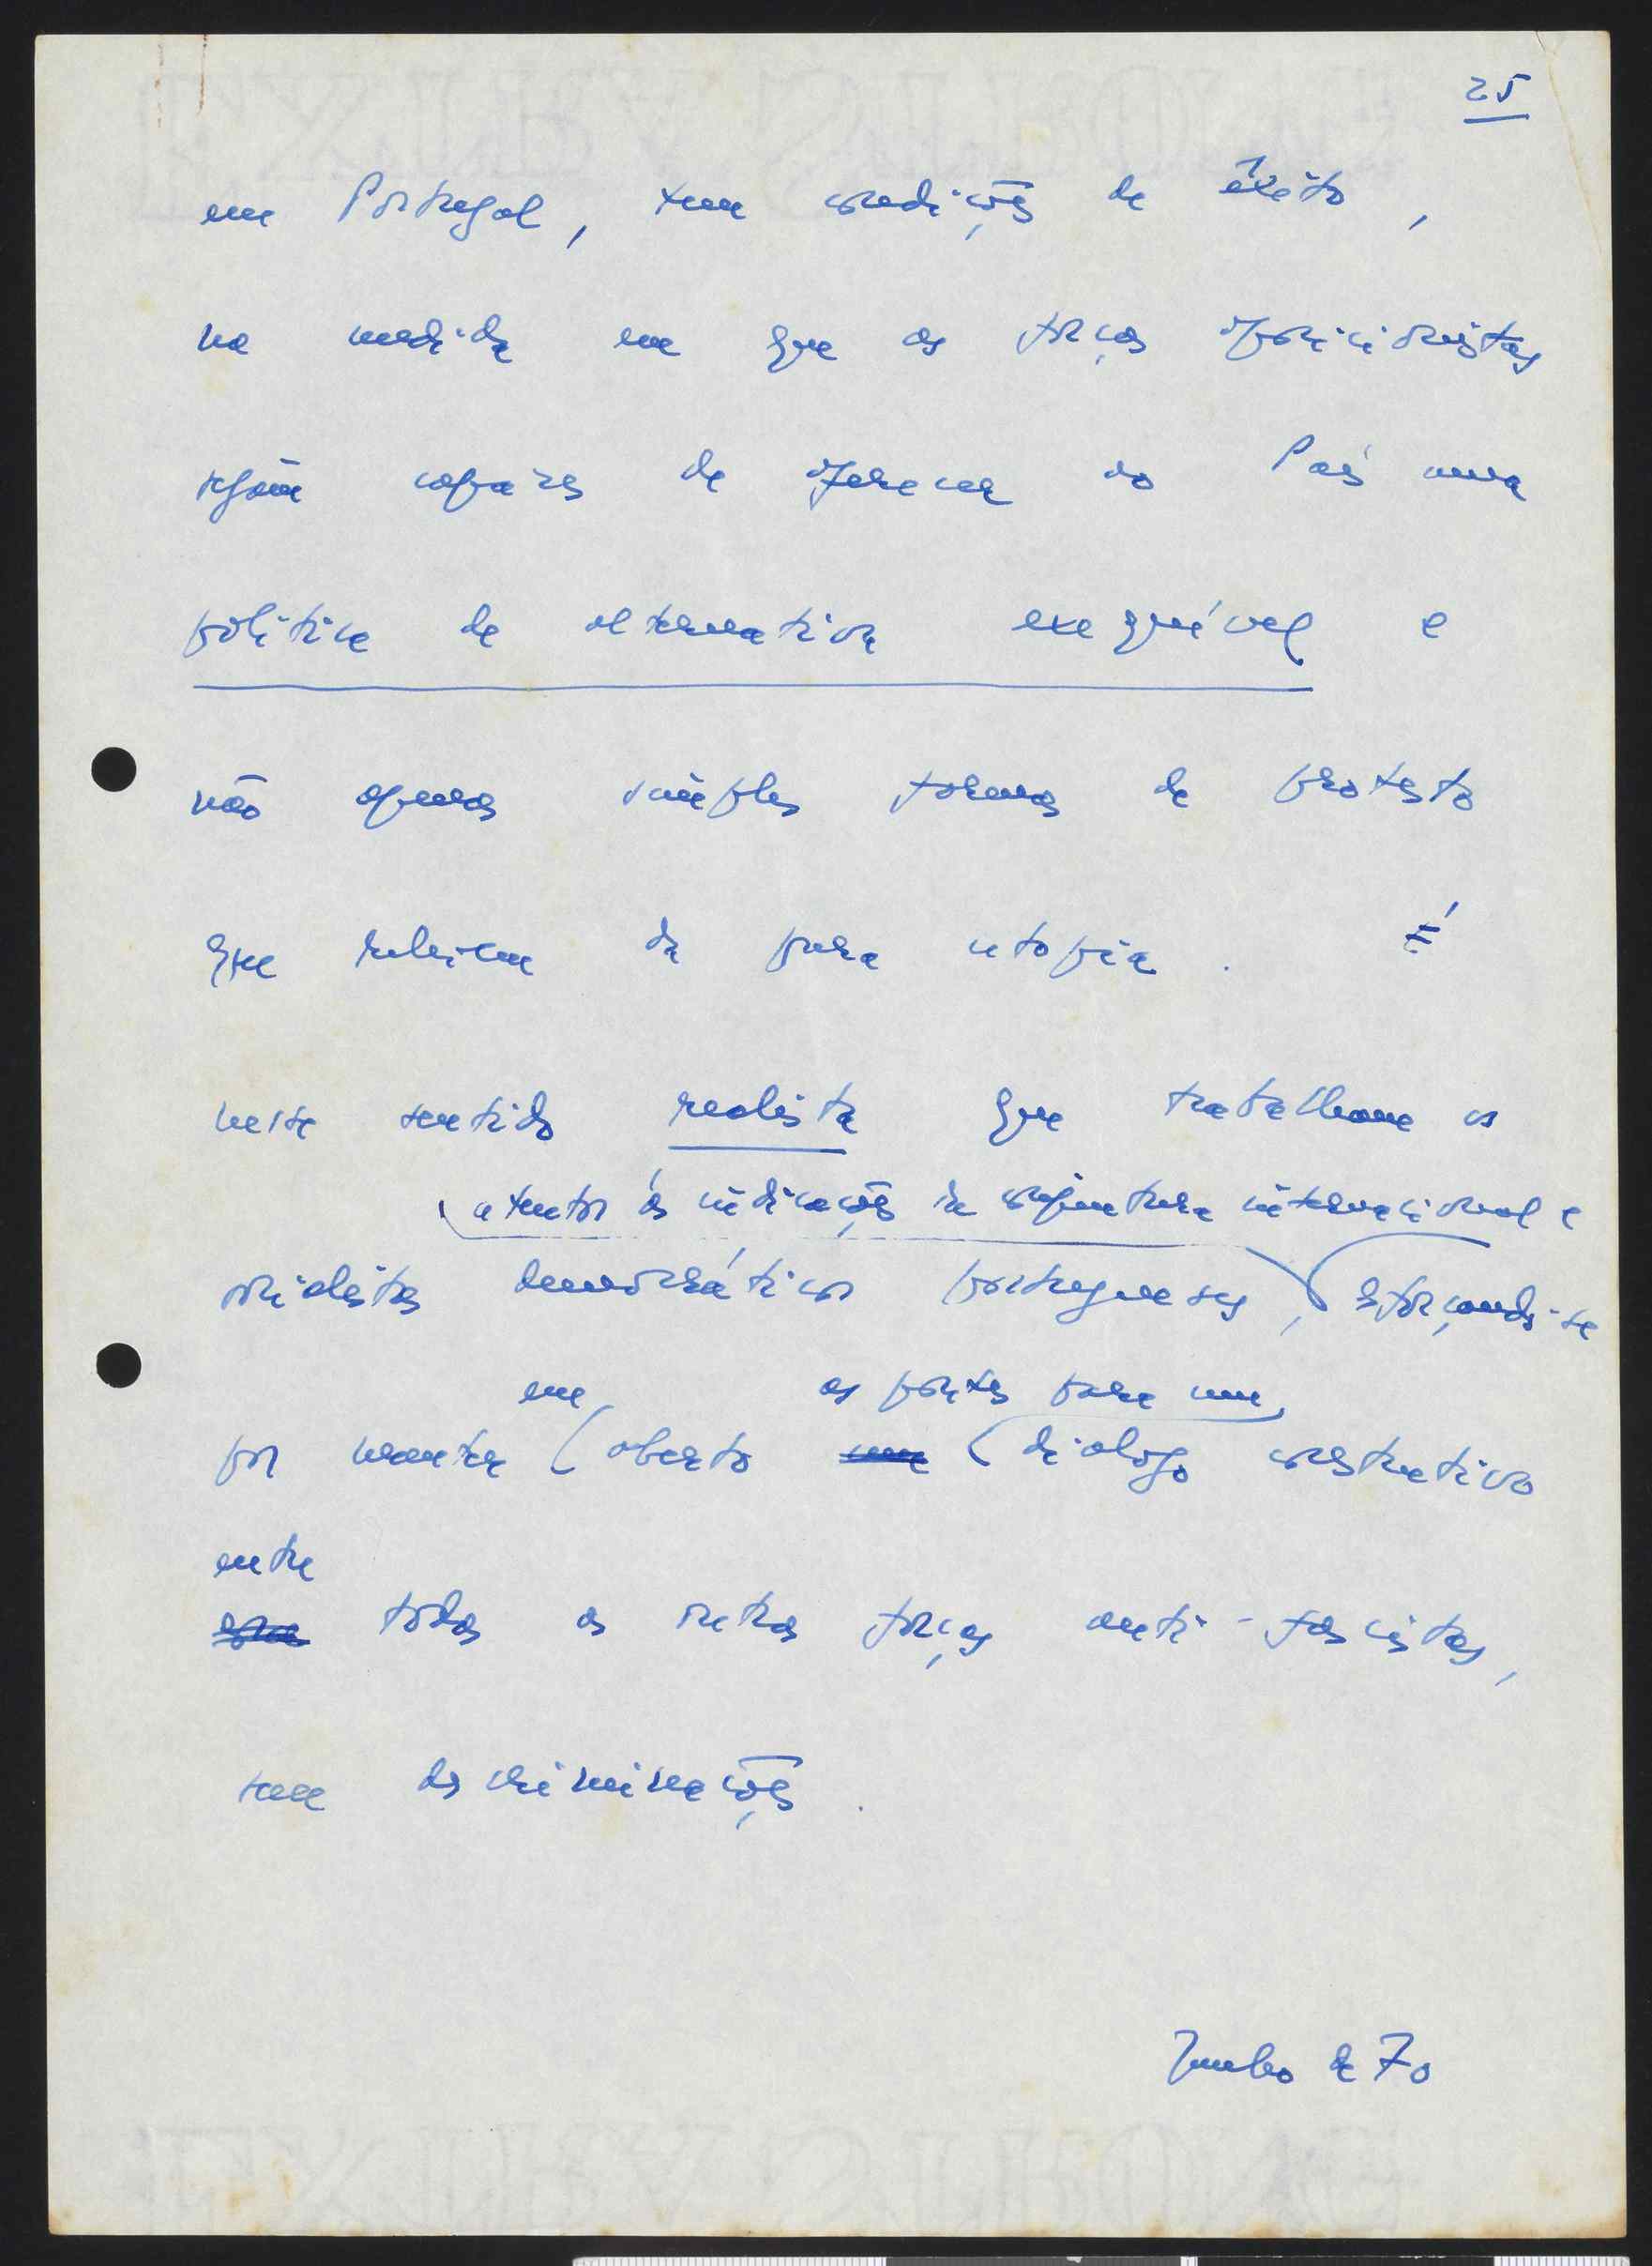 25
em Portugal, tem condições de êxito,
na medida em que as forças oposicionistas
sejam capazes de oferecer ao País uma
política de alternativa exequível e
não apenas simples formas de protesto
que relevem da pura utopia. É
neste sentido realista que trabalham os
atentos às indicações da conjuntura internacional e
socialistas democráticos portugueses, esforçando-se
em as portas para um
por manter aberto uma dialogo construtivo
entre
com todas as outras forças anti-fascistas,
sem descriminações.
Junho de 70